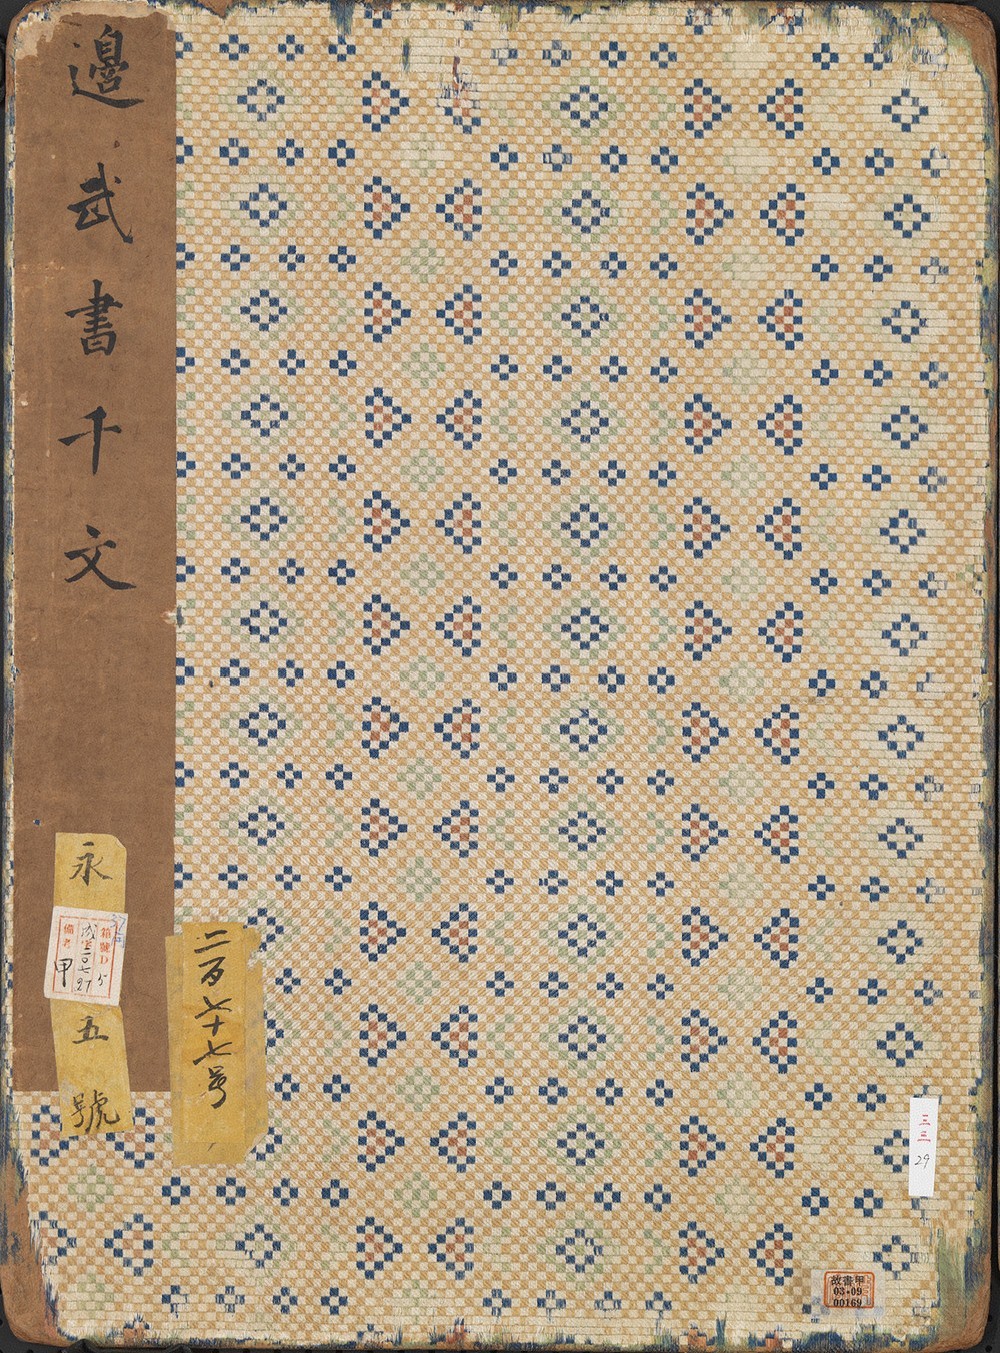 邊武書千文
永
五
號
二百七十七号
箱號D
5
備考
甲
三三
29
故書甲
03-09
00169